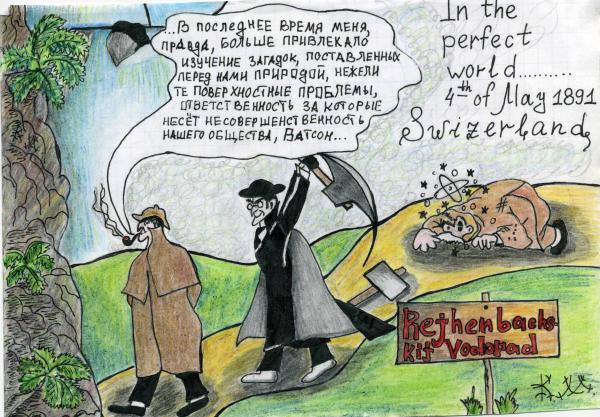 ...В ПОСЛЕДНЕЕ ВРЕМЯ МЕНЯ,
ПРАВДА, БОЛЬШЕ ПРИВЛЕКАЛО
ИЗУЧЕНИЕ ЗАГАДОК, ПОСТАВЛЕННЫХ
ПЕРЕД НАМИ ПРИРОДОЙ, НЕЖЕЛИ
ТЕ ПОВЕРХНОСТНЫЕ ПРОБЛЕМЫ,
ОТВЕТСТВЕННОСТЬ ЗА КОТОРЫЕ
НЕСЁТ НЕСОВЕРШЕНСТВЕННОСТЬ
НАШЕГО ОБЩЕСТВА, ВАТСОН...
In the
perfect
world..........
4th of May 1891
Swizerland,
Rejhenbachs-
kij Vodopad